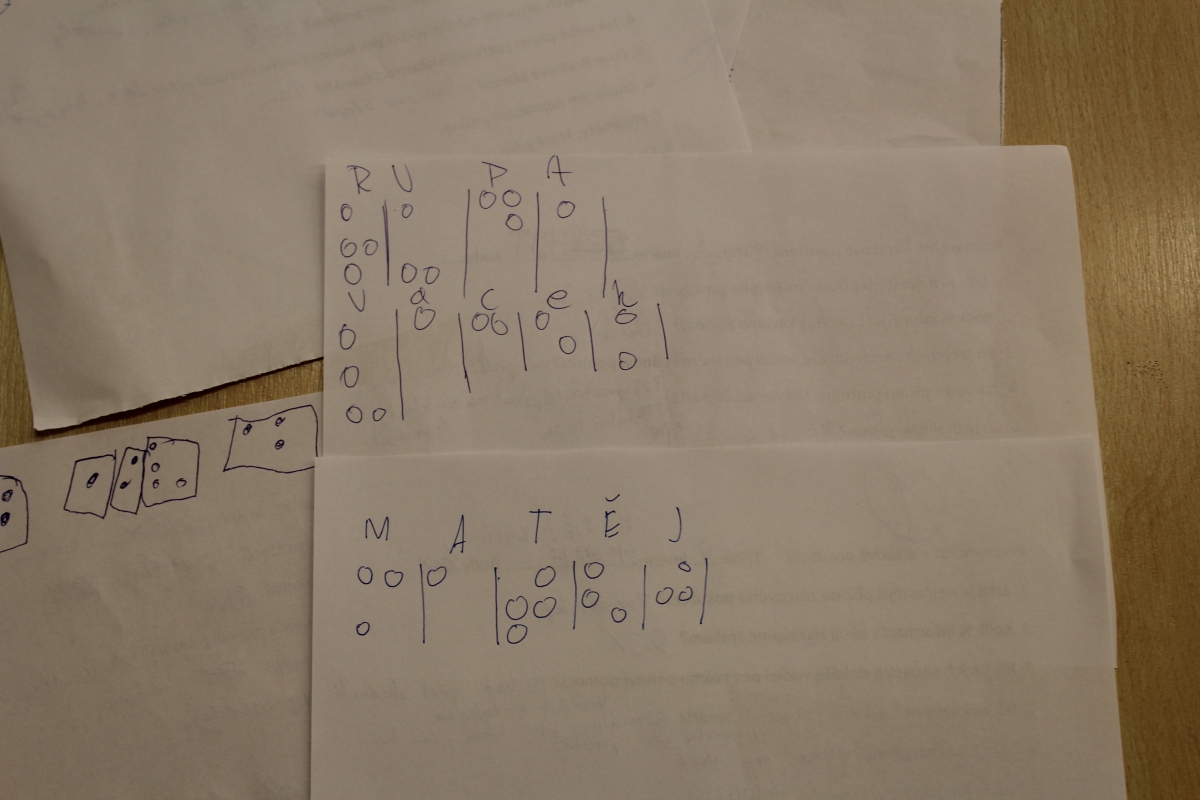 R U D A
V a c e k
M A T Ě J